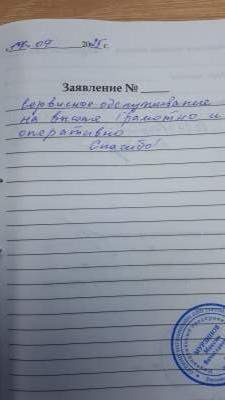 09 2025 г.
Заявление №
сервисное обслуживание
на высше Грамотно и
оперативно
Спасибо!